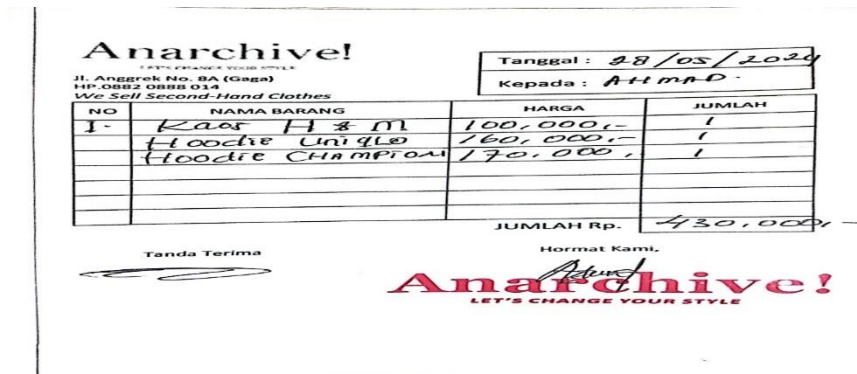 Anarchive!
LET'S CHANGE YOUR STYLE
Jl. Anggrek No. 8A (Gaga)
HP.0882 0888 014
We Sell Second-Hand Clothes
Tanggal : 28/05/2024
Kepada : AHMAD.
NO NAMA BARANG HARGA JUMLAH
1. Kaos H & M 100,000,- 1
Hoodie Uniqlo 160,000,- 1
Hoodie CHAMPION 170,000, 1
JUMLAH Rp. 430,000,-
Tanda Terima Hormat Kami,
Anarchive!
LET'S CHANGE YOUR STYLE